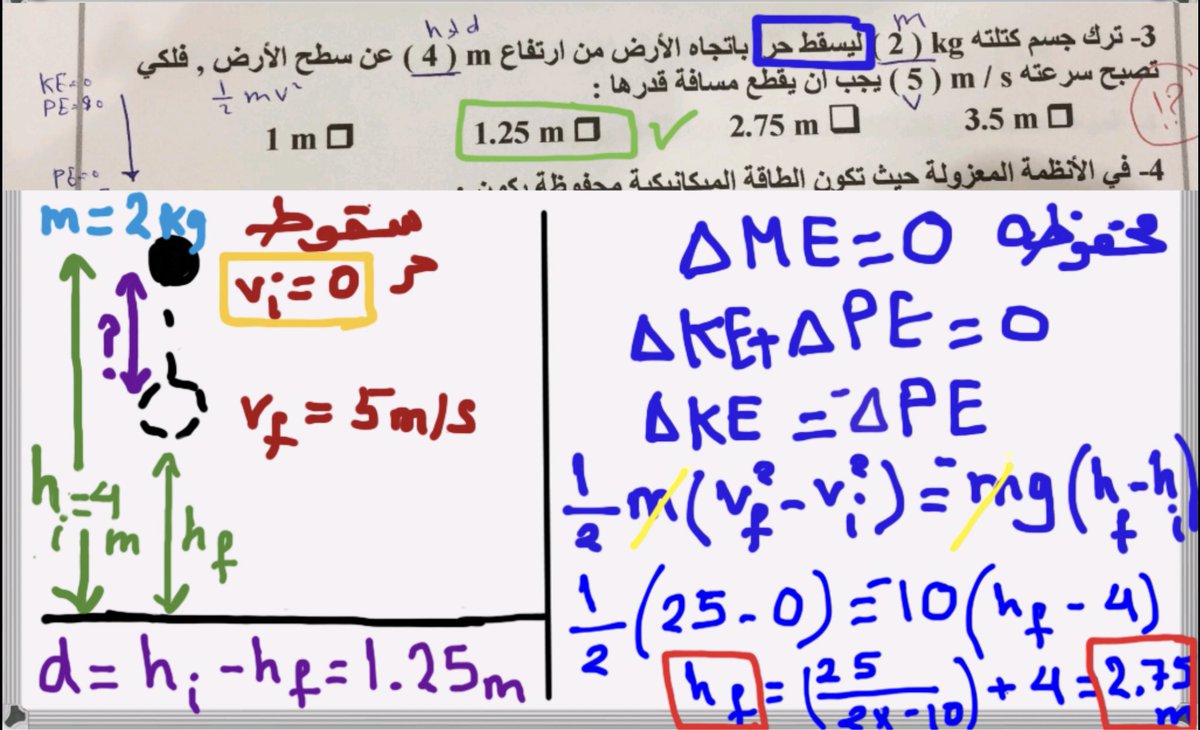 h ≠ d
m
3- ترك جسم كتلته kg ( 2 ) ليسقط حر باتجاه الأرض من ارتفاع m ( 4 ) عن سطح الأرض , فلكي
تصبح سرعته m / s ( 5 ) يجب ان يقطع مسافة قدرها :
v
½ mv²
KE=0
PE=80
PE=0
3.5 m 2.75 m 1.25 m ✓ 1 m
!?
4- في الأنظمة المعزولة حيث تكون الطاقة الميكانيكية محفوظة يكون :
m = 2 kg
سقوط حر
vᵢ = 0
?
v_f = 5 m/s
hᵢ = 4 m
h_f
d = hᵢ - h_f = 1.25 m
ΔME = 0 محفوظة
ΔKE + ΔPE = 0
ΔKE = -ΔPE
½ m (v_f² - vᵢ²) = -mg (h_f - hᵢ)
½ (25 - 0) = -10 (h_f - 4)
h_f = (25 / 2x-10) + 4 = 2.75 m